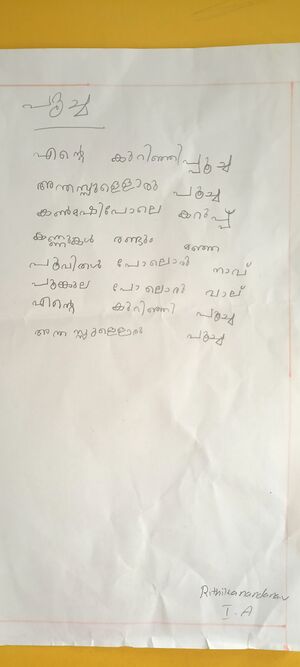 പൂച്ച
എന്റെ കുറിഞ്ഞിപ്പൂച്ച
അന്തസ്സുള്ളൊരു പൂച്ച
കൺമഷിപോലെ കറുപ്പ്
കണ്ണുകൾ രണ്ടും മഞ്ഞ
പൂവിതൾ പോലൊരു നാവ്
പൂങ്കുല പോലൊരു വാല്
എന്റെ കുറിഞ്ഞി പൂച്ച
അന്തസ്സുള്ളൊരു പൂച്ച
Rithikanandanav
I.A